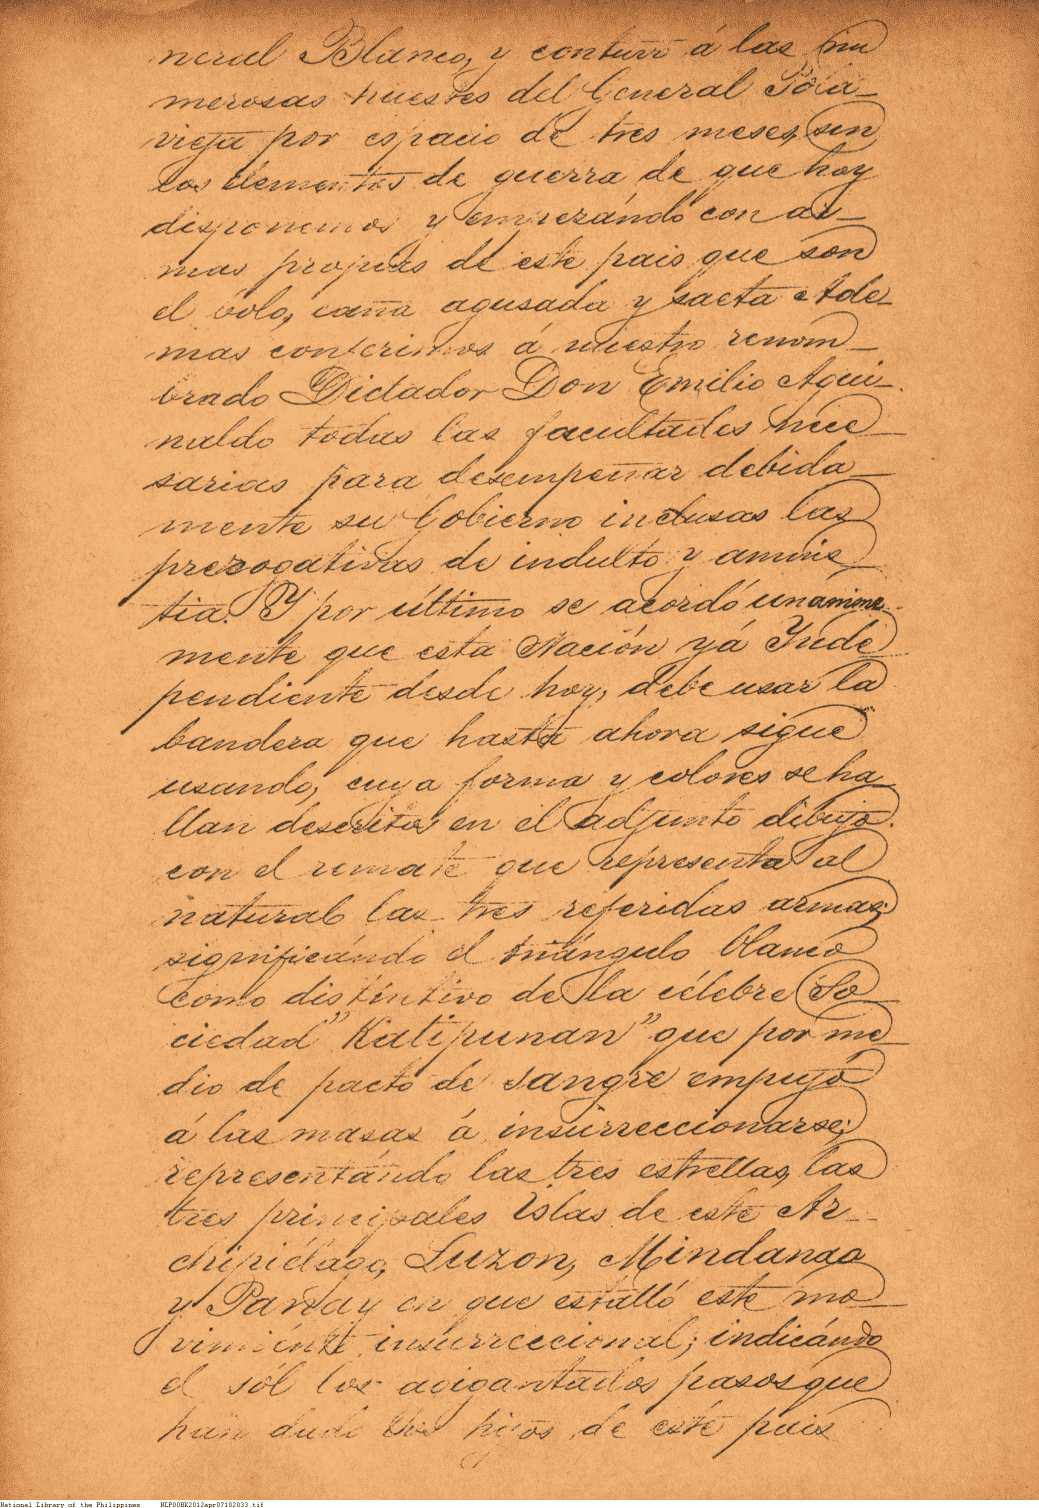 neral Blanco, y contuvo á las nu
merosas huestes del General Pola-
vieja por espacio de tres meses, sin
los elementos de guerra de que hoy
disponemos y empezándo con ar-
mas propias de este pais que son
el bolo, caña agusada y saeta Ade-
mas conferimos á nuestro renom-
brado Dictador Don Emilio Agui-
naldo todas las facultades nece-
sarias para desempeñar debida-
mente su Gobierno inclusas las
prerogativas de indulto y amnis-
tia. Y por último se acordó unanime-
mente que esta Nación yá Inde
pendiente desde hoy, debe usar la
bandera que hasta ahora sigue
usando, cuya forma y colores se ha-
llan descritos en el adjunto dibujo.
con el remate que representa al
natural las tres referidas armas;
significándo el triángulo blanco
como distíntivo de la célebre So-
ciedad "Katipunan" que por me-
dio de pacto de sangre empujó
á las masas á insurreccionarse;
representándo las tres estrellas, las
tres principales Islas de este Ar-
chipiélago, Luzon, Mindanao
y Panay en que estalló este mo-
vimiénto insurreccional; indicándo
el sól los agigantados pasos que
han dado los hijos de este pais
National Library of the Philippines NLP00BK2012apr07102033.tif